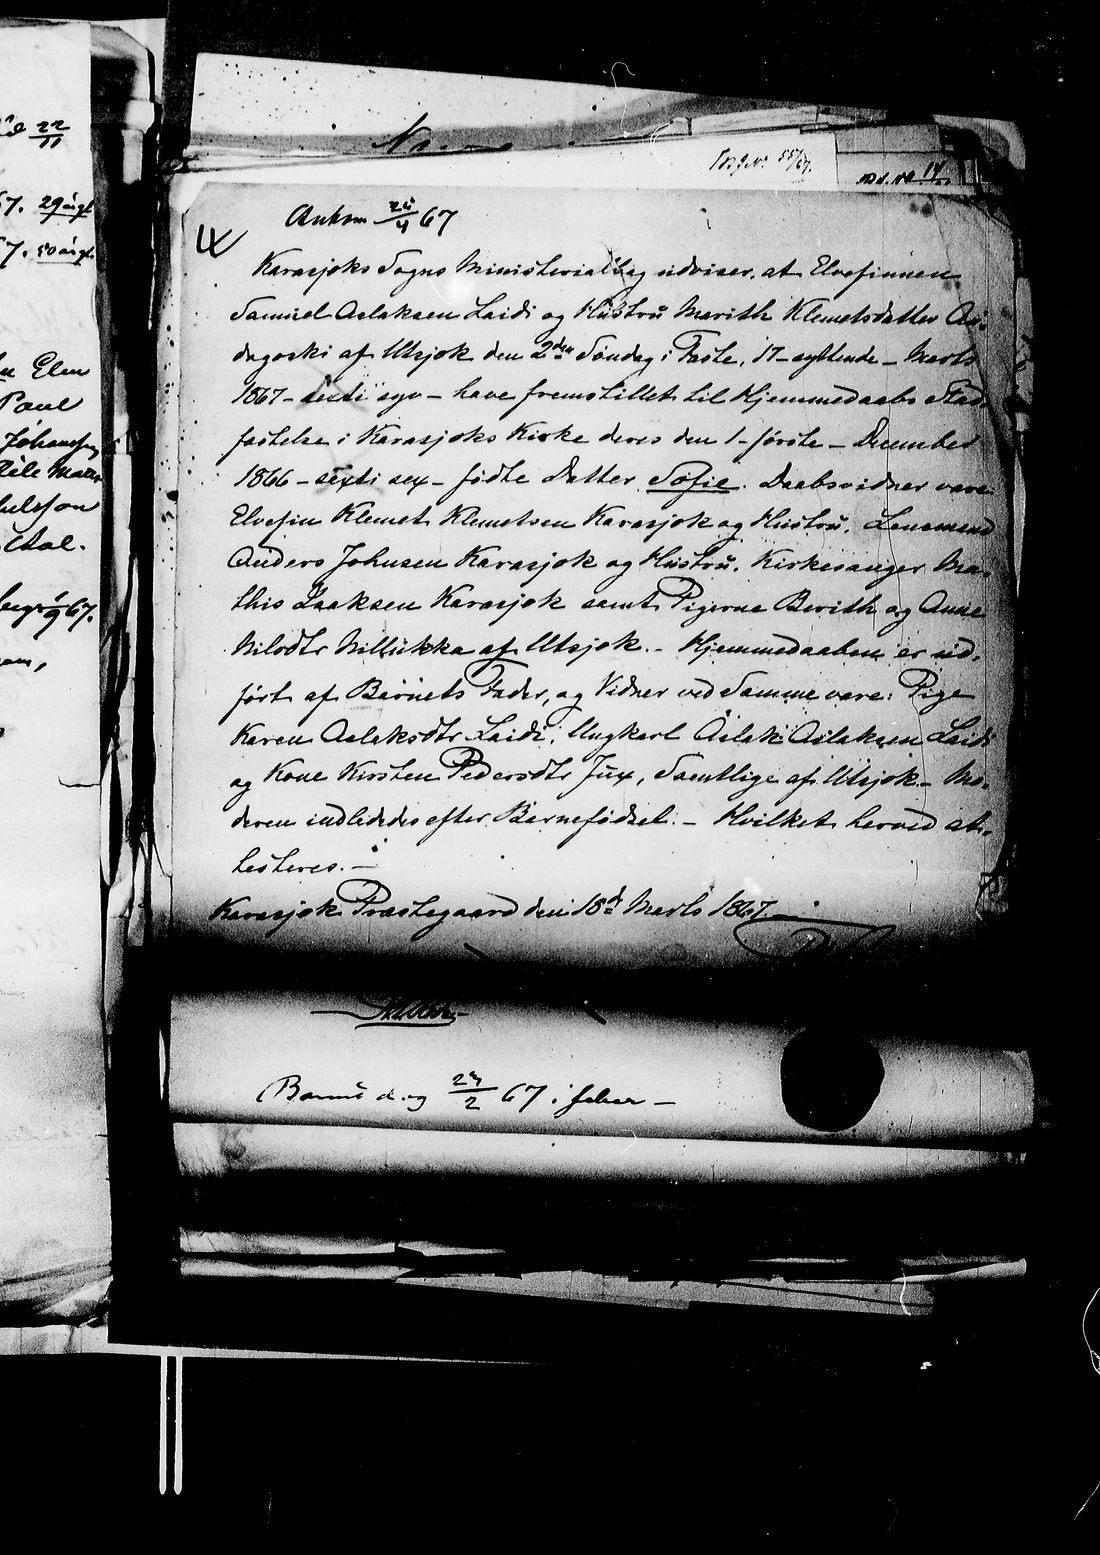 22/11
67. 29
Elen
Paul
67.
55/67.
17
Ankom 25/4 67
Karasjoks Sogns Ministerialbog udviser, at Elvefinnen
Samuel Aslaksen Laidi og Hustru Marith Klemetsdatter Au-
dagoski af Utsjok den 2den Søndag i Faste, 17 - syttende - Marts
1867 - sexti syv - have fremstillet til Hjemmedaabs Stad-
fæstelse i Karasjoks Kirke deres den 1 - første - December
1866 - sexti sex - fødte Datter Sofie. Daabsvidner vare:
Elvefin Klemet Klemetsen Karasjok og Hustru, Lensmand
Anders Johnsen Karasjok og Hustru, Kirkesanger Ma-
this Isaksen Karasjok samt Pigerne Berith og Anne
Nilsdtr Nillukka af Utsjok. - Hjemmedaaben er ud-
ført af Barnets Fader, og Vidner ved Samme vare: Pige
Karen Aslaksdtr Laidi, Ungkarl Aslak Aslaksen Laidi
og Kone Kirsten Pedersdtr Jux, Samtlige af Utsjok - Mo-
deren indlededes efter Barnefødsel. - Hvilket herved at-
testeres. -
Karasjok Præstegaard den 18d Marts 1867. -
67